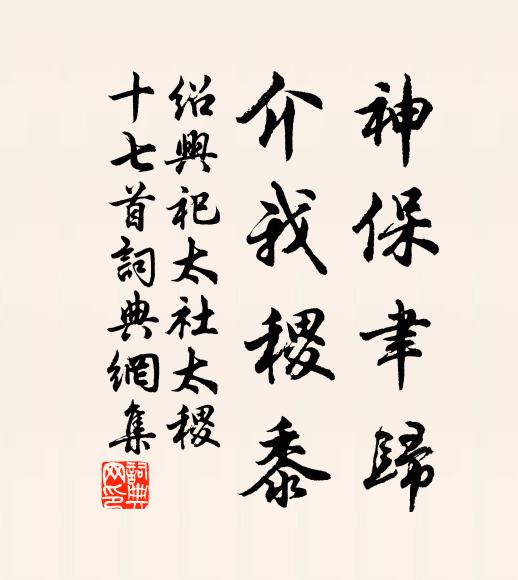 神保聿歸
介我稷黍
紹興祀太社太稷
十七首詞典網集
詞典網印